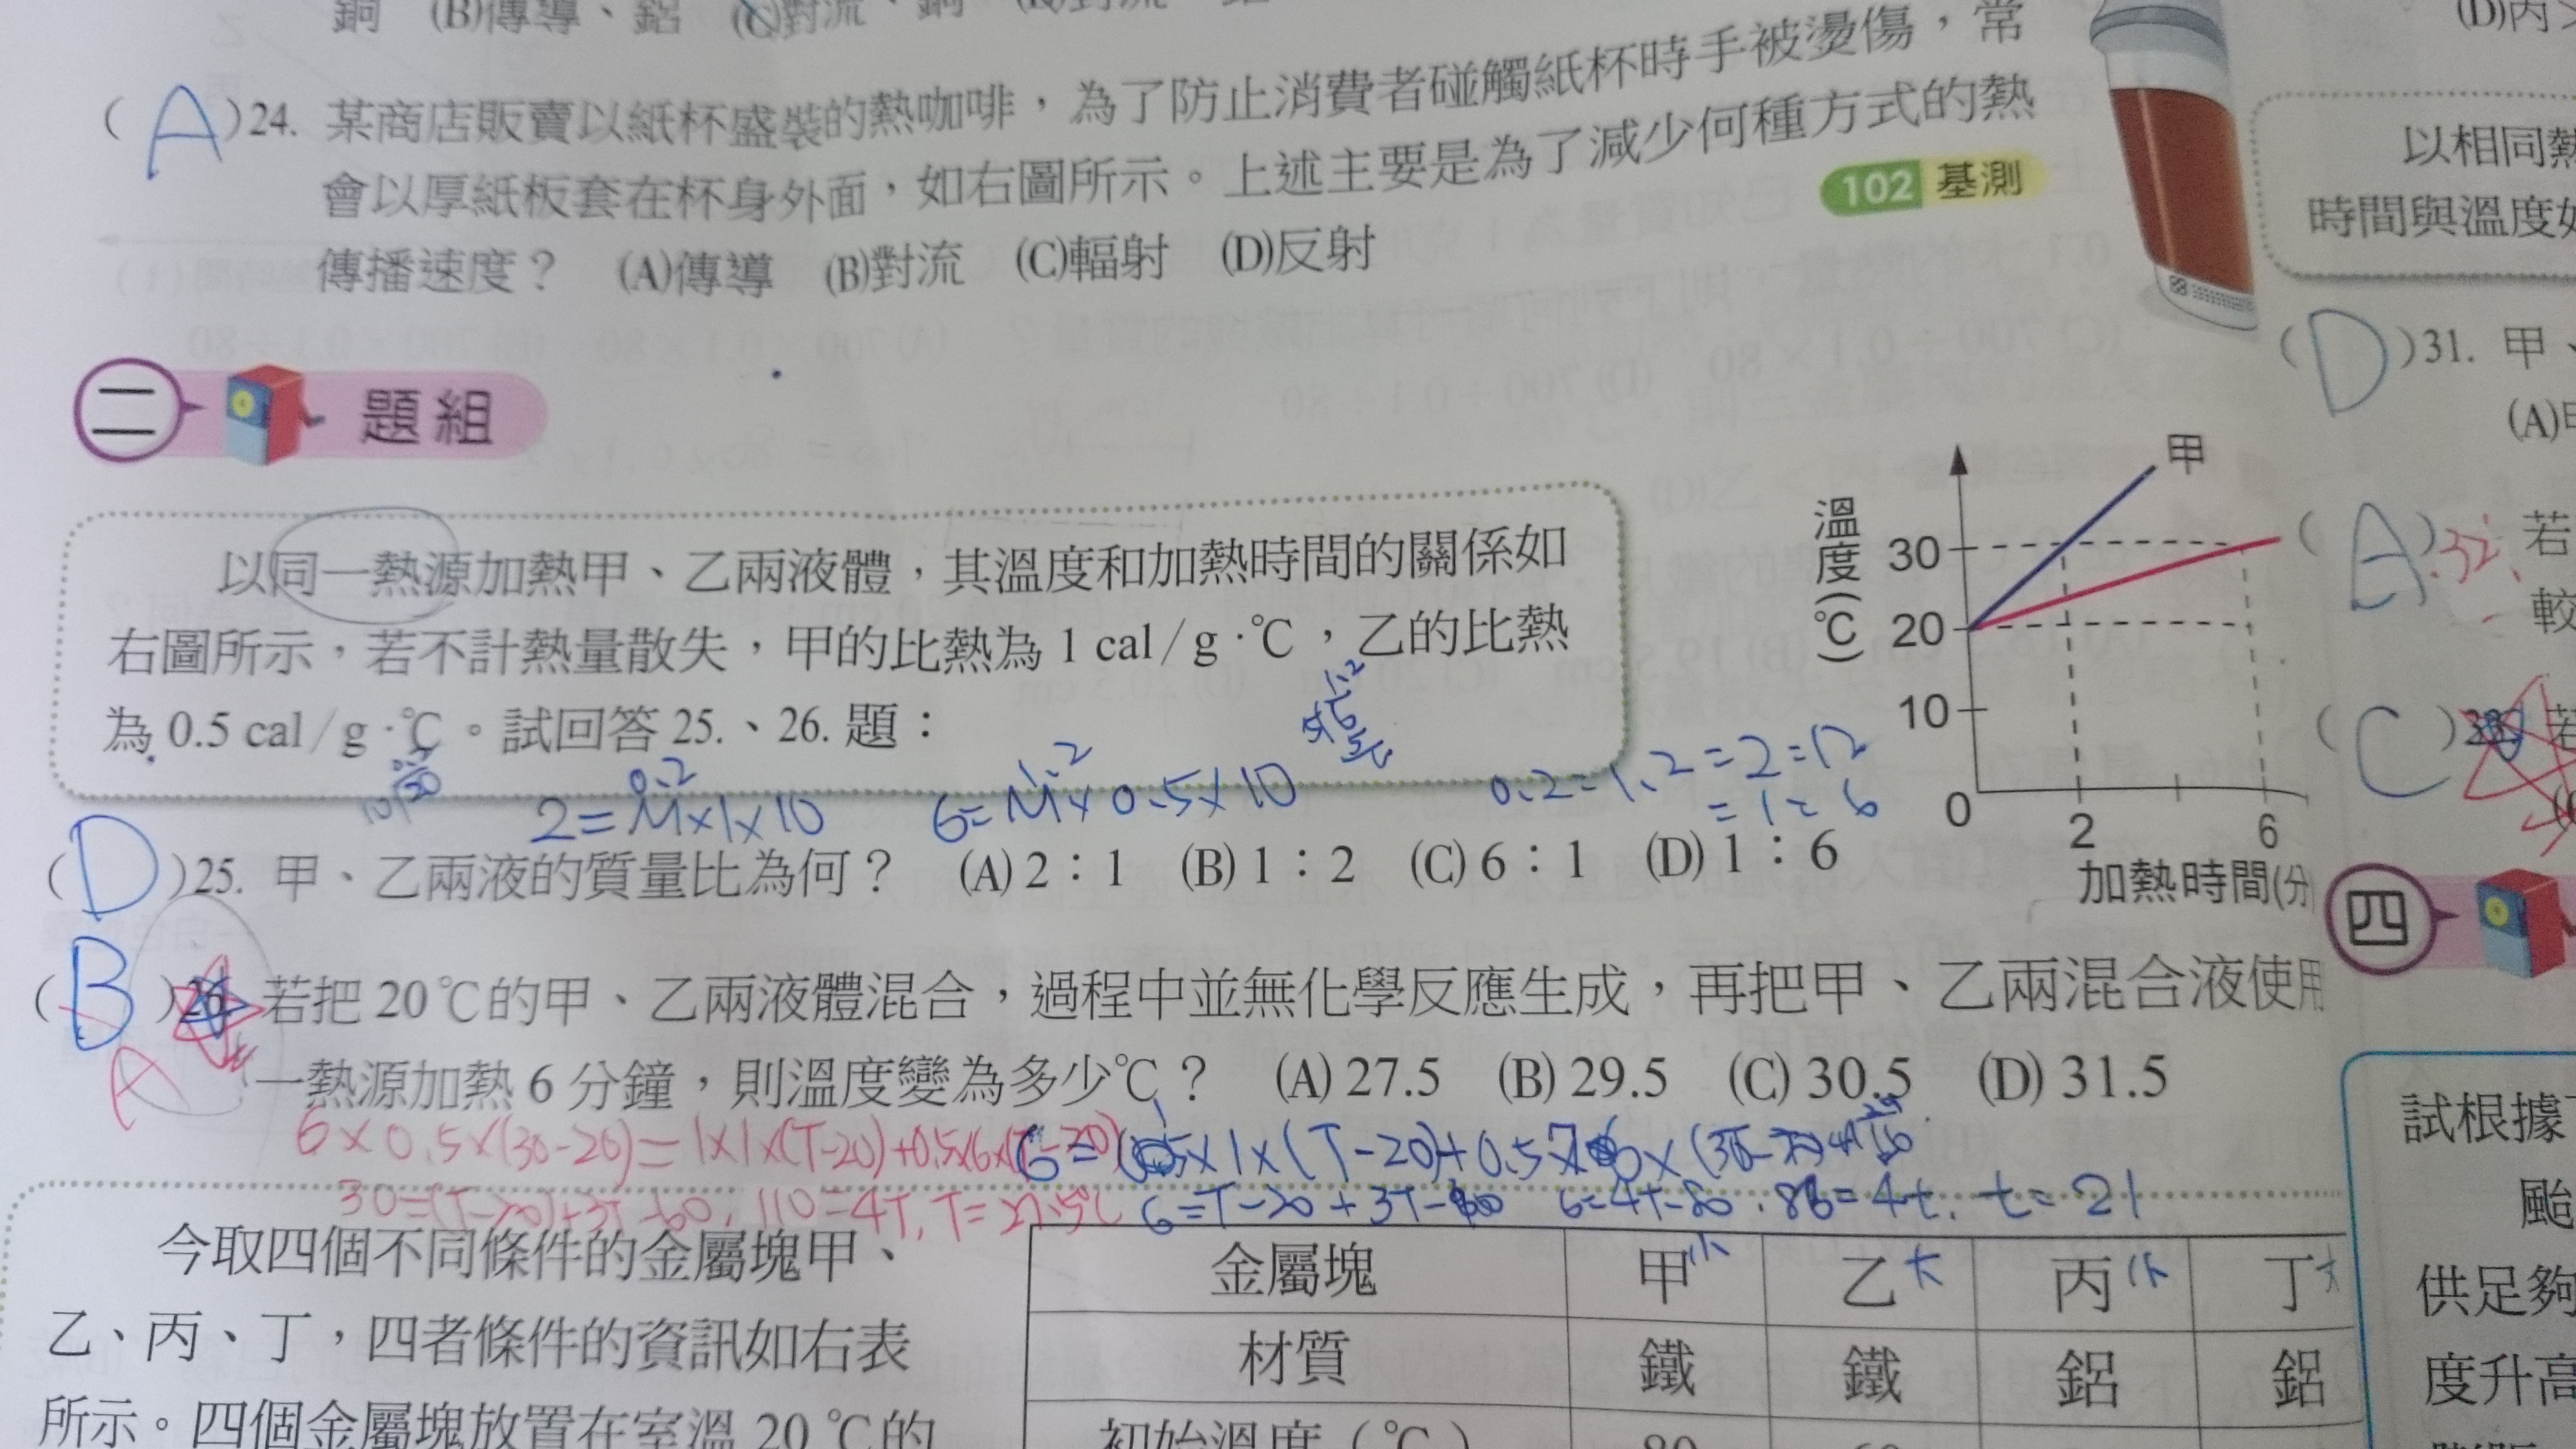 銅 (B)傳導、鋁 (C)對流、銅
(A)24. 某商店販賣以紙杯盛裝的熱咖啡，為了防止消費者碰觸紙杯時手被燙傷，常
會以厚紙板套在杯身外面，如右圖所示。上述主要是為了減少何種方式的熱
傳播速度？ (A)傳導 (B)對流 (C)輻射 (D)反射
102 基測
二 題組
以同一熱源加熱甲、乙兩液體，其溫度和加熱時間的關係如
右圖所示，若不計熱量散失，甲的比熱為 1 cal/g·℃，乙的比熱
為 0.5 cal/g·℃。試回答 25.、26. 題：
甲
溫度(℃)
30
20
10
0
2
6
加熱時間(分
0.2
2=M×1×10
1.2
6=M×0.5×10
0.2=1.2=2=12
=1=6
(D)25. 甲、乙兩液的質量比為何？ (A) 2：1 (B) 1：2 (C) 6：1 (D) 1：6
(B) 若把 20℃的甲、乙兩液體混合，過程中並無化學反應生成，再把甲、乙兩混合液使用
A
一熱源加熱 6 分鐘，則溫度變為多少℃？ (A) 27.5 (B) 29.5 (C) 30.5 (D) 31.5
6×0.5×(30-20)=1×1×(T-20)+0.5×6×(T-20)
30=(T-20)+3T-60, 110=4T, T=27.5℃
6=T-20+3T-60 6=4T-80. 86=4t. t=21
今取四個不同條件的金屬塊甲、
乙、丙、丁，四者條件的資訊如右表
所示。四個金屬塊放置在室溫 20 ℃的
金屬塊 甲小 乙大 丙小 丁大
材質 鐵 鐵 鋁 鋁
初始溫度（℃） 80 60
(D)丙
以相同熱
時間與溫度如
(D)31. 甲、
(A)甲
(A).32. 若
較
(C) 若
四
試根據下
颱
供足夠
度升高